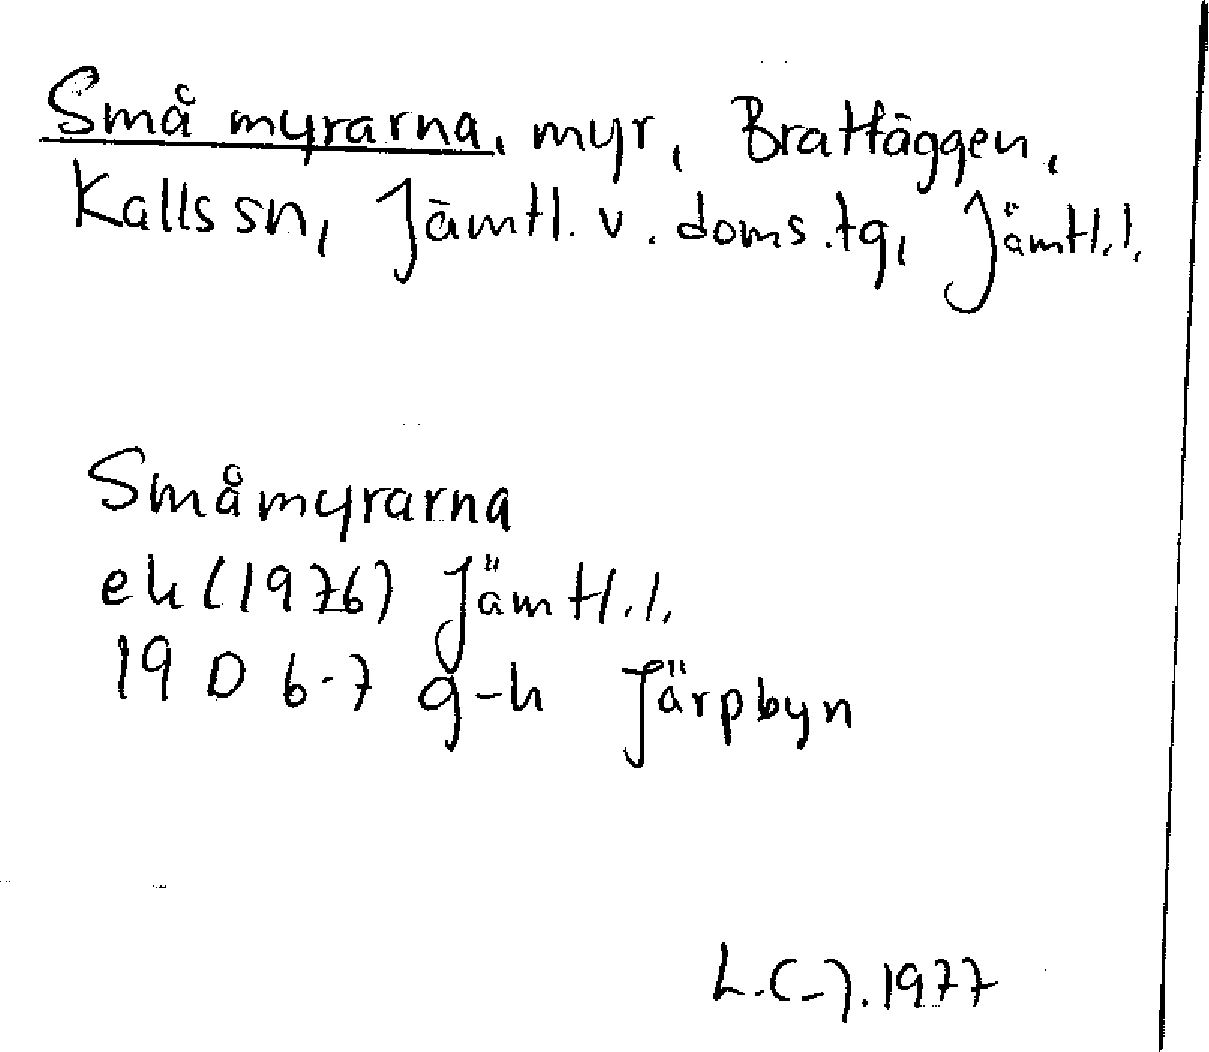 Små myrarna, myr, Brattäggen,
Kalls sn, Jämtl. v. doms.tg, Jämtl.l.
Småmyrarna
ek (1976) Jämtl.l.
19 D 6-7 g-h Järpbyn
L.C-J. 1977